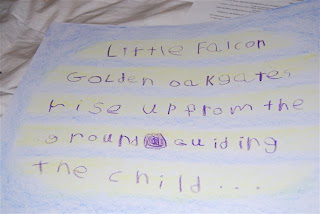 Little Falcon
Golden oakgates
rise up prom the
ground guiding
the child...